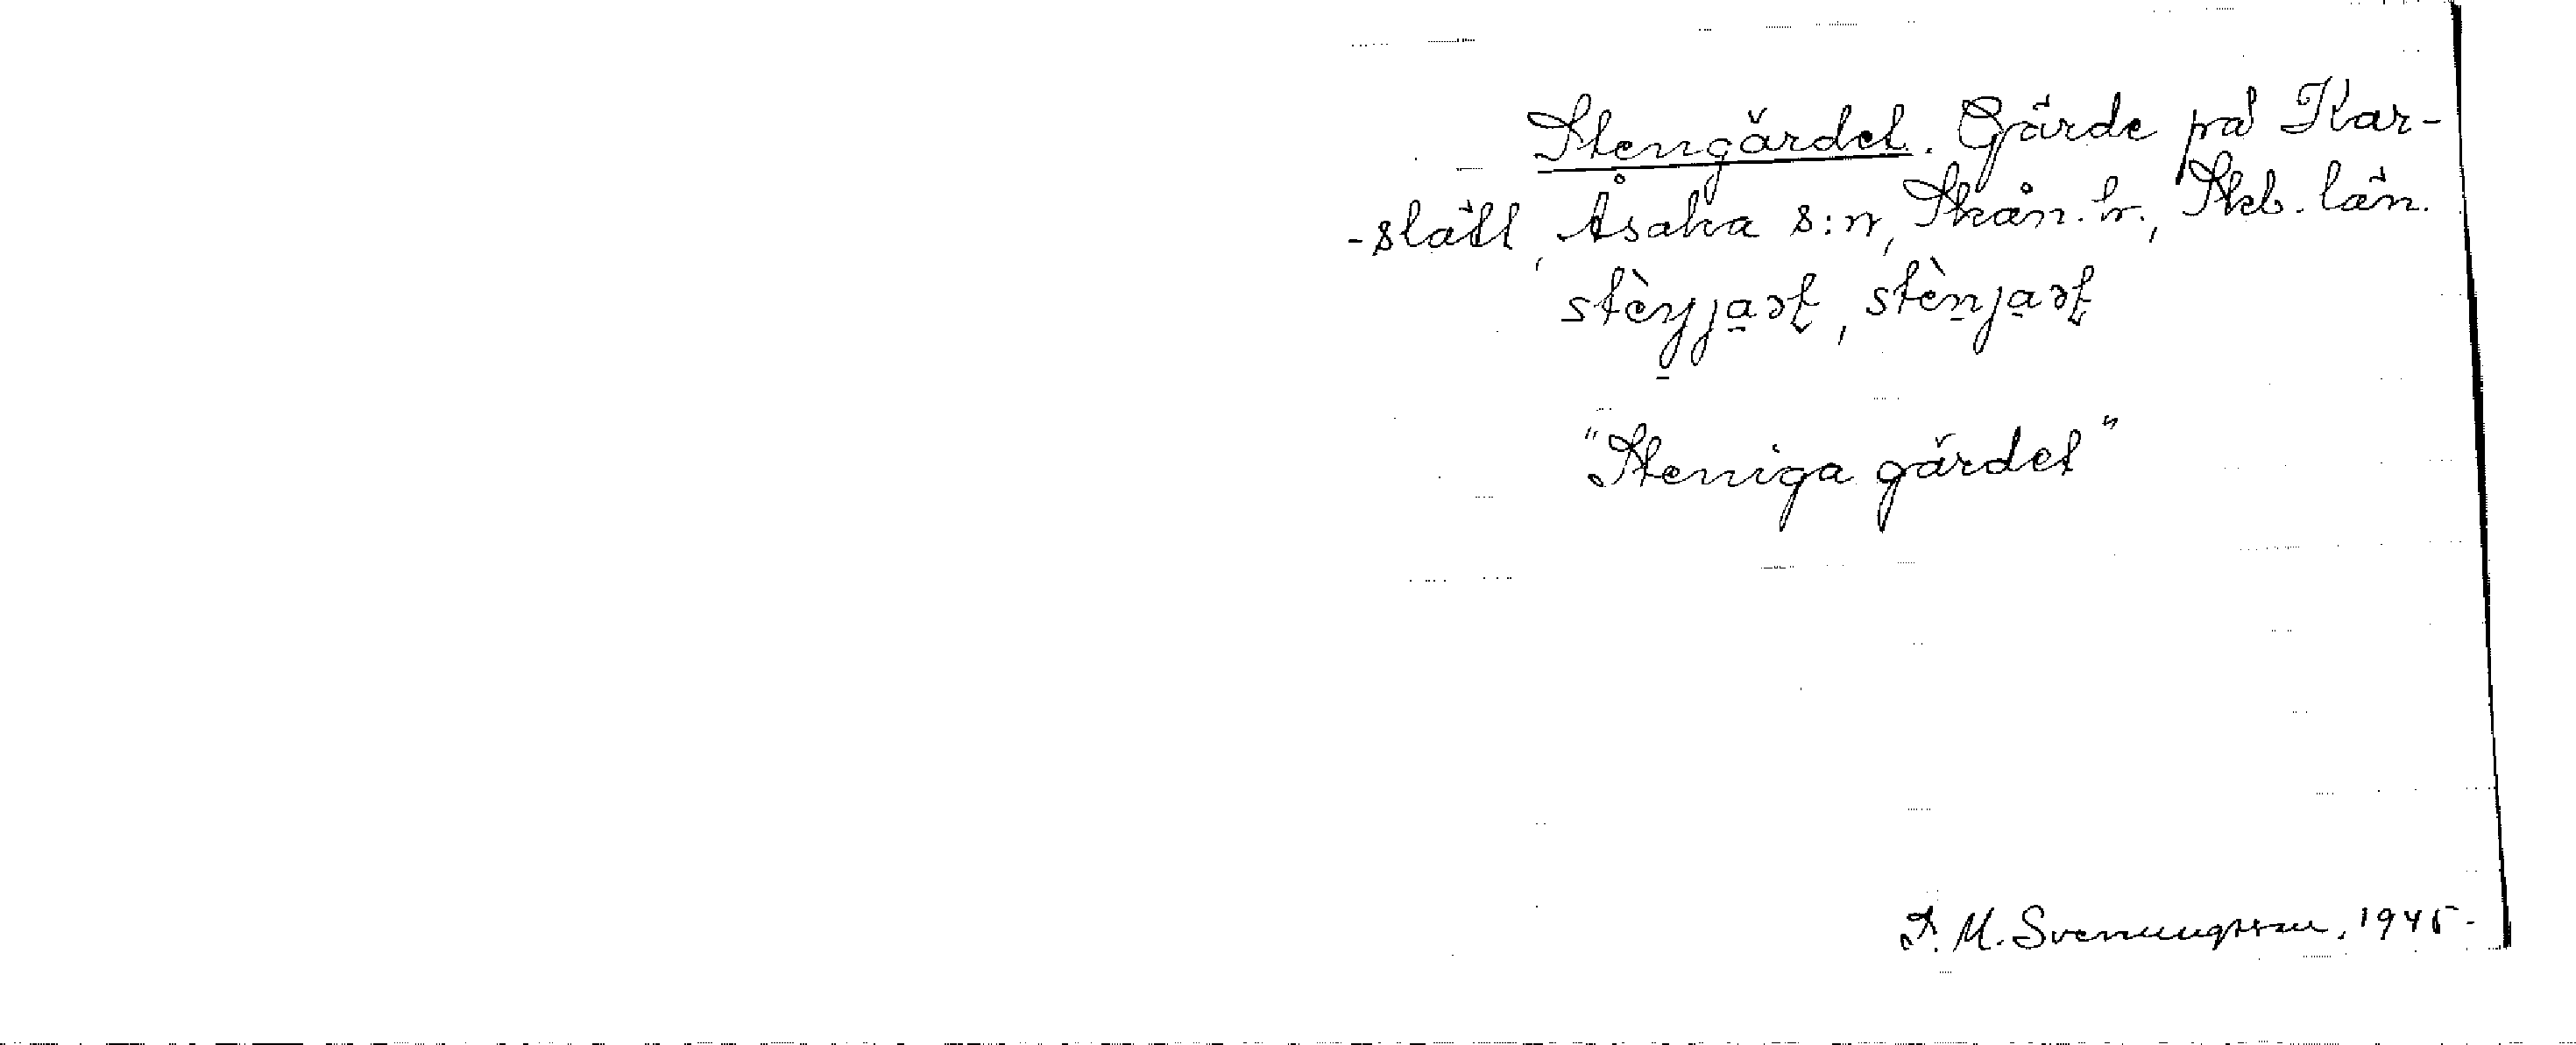 Stengärdet. Gärde på Kar-
-slätt, Åsaka s:n, Skån. hr., Skb. län.
stèŋja̱ət, stènja̱ət
"Steniga gärdet"
S. M. Svenungsson, 1945-